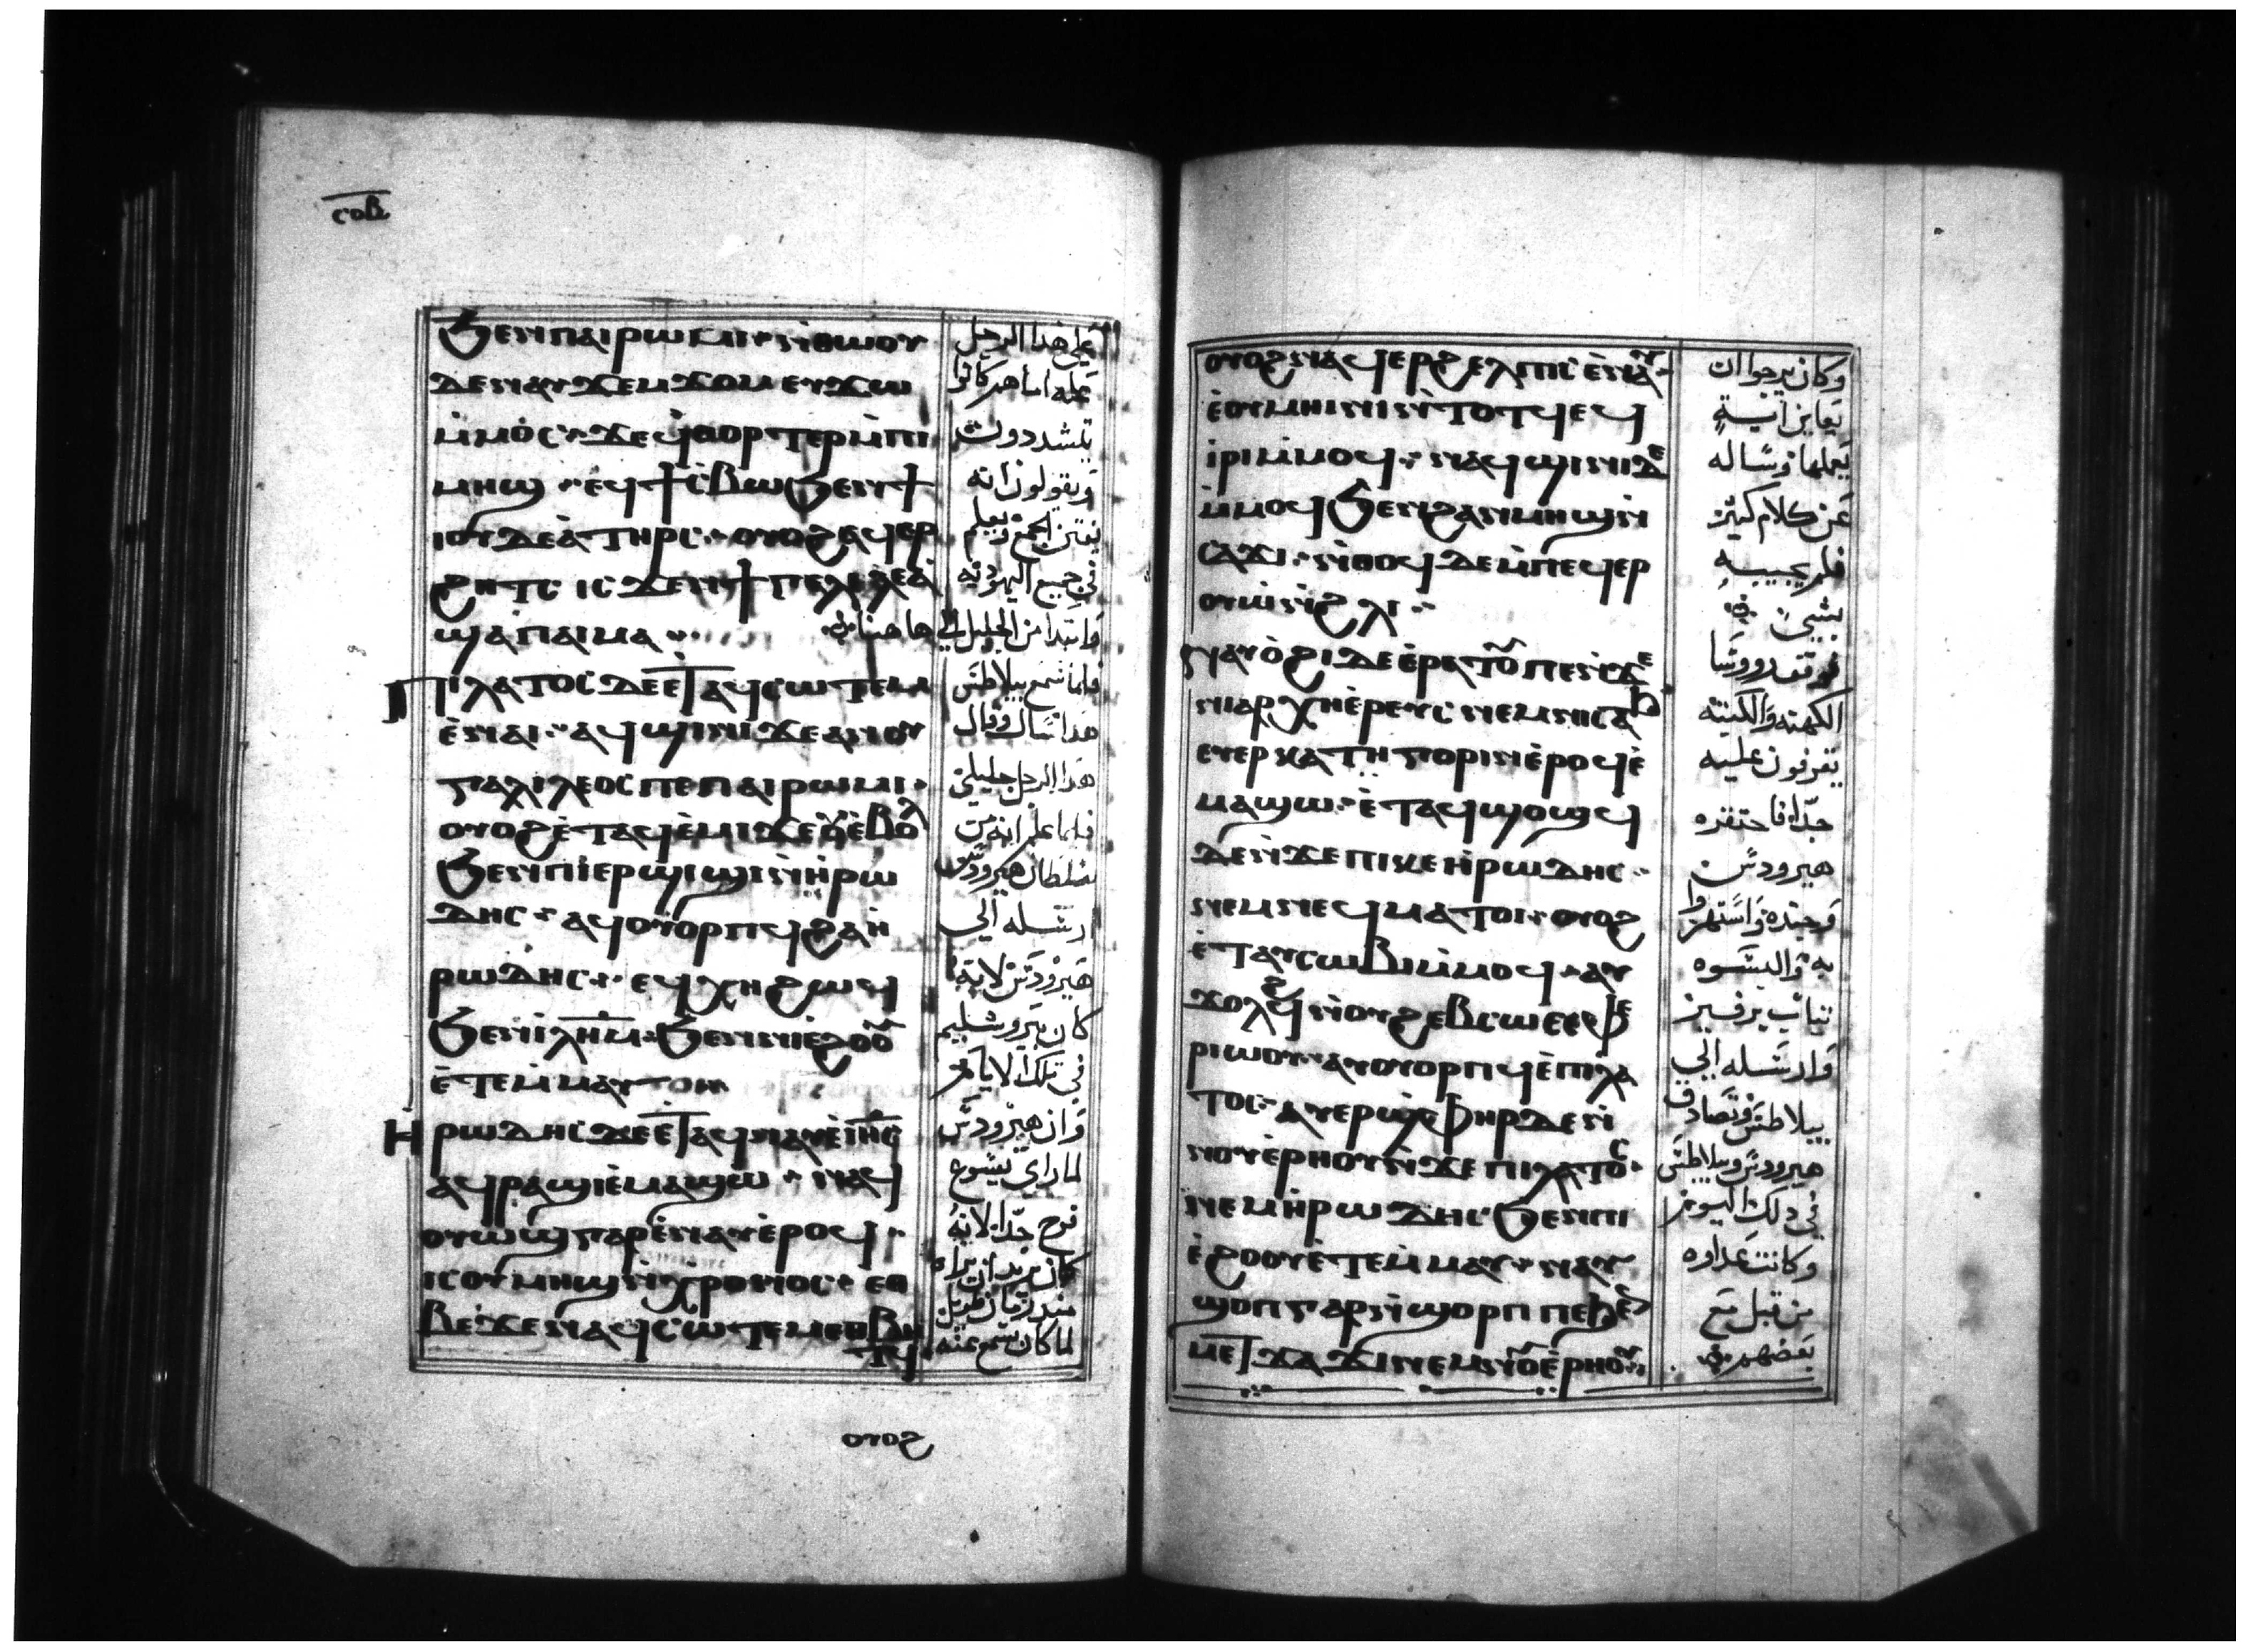 ⲥⲟⲃ
ϧⲉⲛⲡⲁⲓⲣⲱⲙⲓ ⲛ̇ⲑⲱⲟⲩ
ⲇⲉⲛⲁⲩϫⲉⲙϫⲟⲙ ⲉⲩϫⲱ
ⲙ̇ⲙⲟⲥ ϫⲉϥϣⲑⲟⲣⲧⲉⲣⲙ̇ⲡⲓ
ⲙⲏϣ ⲉϥϯⲥ̇ⲃⲱϧⲉⲛϯ
ⲓⲟⲩⲇⲉⲁ̇ⲧⲏⲣⲥ ⲟⲩⲟϩⲁϥⲉⲣ
ϩⲏⲧⲥ ⲓⲥϫⲉⲛϯⲅⲁⲗⲓⲗⲉⲁ̇
ϣⲁⲡⲁⲓⲙⲁ
ⲡⲓⲗⲁⲧⲟⲥ ⲇⲉⲉⲧⲁϥⲥⲱⲧⲉⲙ
ⲉ̇ⲛⲁⲓ ⲁϥϣⲓⲛⲓ ϫⲉⲁⲛⲟⲩ
ⲅⲁⲗⲓⲗⲉⲟⲥ ⲡⲉⲡⲁⲓⲣⲱⲙⲓ
ⲟⲩⲟϩⲉ̇ⲧⲁϥⲉ̇ⲙⲓϫⲉⲟⲩⲉ̇ⲃⲟⲗ
ϧⲉⲛⲡⲓⲉⲣϣⲓϣⲓⲛ̇ⲏ̇ⲣⲱ
ⲇⲏⲥ ⲁϥⲟⲩⲟⲣⲡϥϩⲁⲏ̇
ⲣⲱⲇⲏⲥ ⲉϥⲭⲏϩⲱϥ
ϧⲉⲛⲓⲗⲏⲙ ϧⲉⲛⲛⲓⲉ̇ϩⲟⲟⲩ
ⲉ̇ⲧⲉⲙ̇ⲙⲁⲩ
ⲏ̇ⲣⲱⲇⲏⲥ ⲇⲉⲉⲧⲁϥⲛⲁⲩⲉ̇ⲓⲏⲥ
ⲁϥⲣⲁϣⲓⲉ̇ⲙⲁϣⲱ ⲛⲁϥ
ⲟⲩⲱϣⲅⲁⲣⲉ̇ⲛⲁⲩⲉ̇ⲣⲟϥ
ⲓⲥⲟⲩⲙⲏϣⲛ̇ⲭⲣⲟⲛⲟⲥ ⲉⲑ
ⲃⲉϫⲉⲛⲁϥⲥⲱⲧⲉⲙⲉⲑⲃⲏ
ⲧϥ
ⲟⲩⲟϩ
علي هذا الرجل
علة اما هم كانوا
يتشددون
ويقولون انه
يفتن الجمع ويعلم
في جميع اليهودية
وابتدا من الجليل الي هاهنا
فلما سمع بيلاطس
هذا سال وقال
هذا الرجل جليلي
فلما علم انه من
سلطان هيرودس
ارسله الي
هيرودس لانه
كان بيروشليم
في تلك الايام
وان هيرودس
لما راي يسوع
فرح جدا لانه
كان يريد ان يراه
منذ زمان طويل
لما كان يسمع عنه
ⲟⲩⲟϩⲛⲁϥⲉⲣϩⲉⲗⲡⲓⲥ ⲉ̇ⲛⲁⲩ
ⲉ̇ⲟⲩⲙⲏⲓⲛⲓ ⲛ̇ⲧⲟⲧϥ ⲉϥ
ⲓ̇ⲣⲓⲙ̇ⲙⲟϥ ⲛⲁϥϣⲓⲛⲓⲇⲉ
ⲙ̇ⲙⲟϥϧⲉⲛϩⲁⲛⲙⲏϣⲛ̇
ⲥⲁϫⲓ ⲛ̇ⲑⲟϥⲇⲉⲙ̇ⲡⲉϥⲉⲣ
ⲟⲩⲱ̇ⲛ̇ϩⲗⲓ
ⲛⲁⲩⲟ̇ϩⲓⲇⲉⲉ̇ⲣⲁⲧⲟⲩⲡⲉⲛ̇ϫⲉ
ⲛⲓⲁⲣⲭⲏⲉ̇ⲣⲉⲩⲥ ⲛⲉⲙⲛⲓⲥⲁϧ
ⲉⲩⲉⲣⲕⲁⲧⲏⲅⲟⲣⲓⲛⲉ̇ⲣⲟϥⲉ̇
ⲙⲁϣⲱ ⲉ̇ⲧⲁϥϣⲟϣϥ
ⲇⲉⲛ̇ϫⲉⲡⲓⲕⲉⲏ̇ⲣⲱⲇⲏⲥ
ⲛⲉⲙⲛⲉϥⲙⲁⲧⲟⲓ ⲟⲩⲟϩ
ⲉ̇ⲧⲁⲩⲥⲱⲃⲓⲙ̇ⲙⲟϥ ⲁⲩ
ϫⲟⲗϩϥⲛ̇ⲟⲩϩⲉⲃⲥⲱ ⲉⲥⲫⲉ
ⲣⲓⲱⲟⲩ ⲁⲩⲟⲩⲟⲣⲡϥⲉ̇ⲡⲓⲗⲁ
ⲧⲟⲥ ⲁⲩⲉⲣϣ̇ⲫⲏⲣ ⲇⲉⲛ̇
ⲛⲟⲩⲉ̇ⲣⲏⲟⲩⲛ̇ϫⲉⲡⲓⲗⲁⲧⲟⲥ
ⲛⲉⲙⲏ̇ⲣⲱⲇⲏⲥ ϧⲉⲛⲡⲓ
ⲉ̇ϩⲟⲟⲩⲉ̇ⲧⲉⲙ̇ⲙⲁⲩ ⲛⲁⲩ
ϣⲟⲡⲅⲁⲣⲛ̇ϣⲟⲣⲡ ⲡⲉϧⲉⲛ
ⲙⲉⲧϫⲁϫⲓⲛⲉⲙⲛⲟⲩⲉ̇ⲣⲏⲟⲩ
وكان يرجوا ان
يعاين اية
يعملها وساله
عن كلام كثير
فلم يجيبه
بشي
فوقف روسا
الكهنة والكتبة
يقرفون عليه
جدا فاحتقره
هيرودس
وجنده واستهزوا
به والبسوه
ثياب برفير
وارسله الي
بيلاطس وتصادق
هيرودس وبيلاطس
في ذلك اليوم
وكانت عداوه
من قبل مع
بعضهم